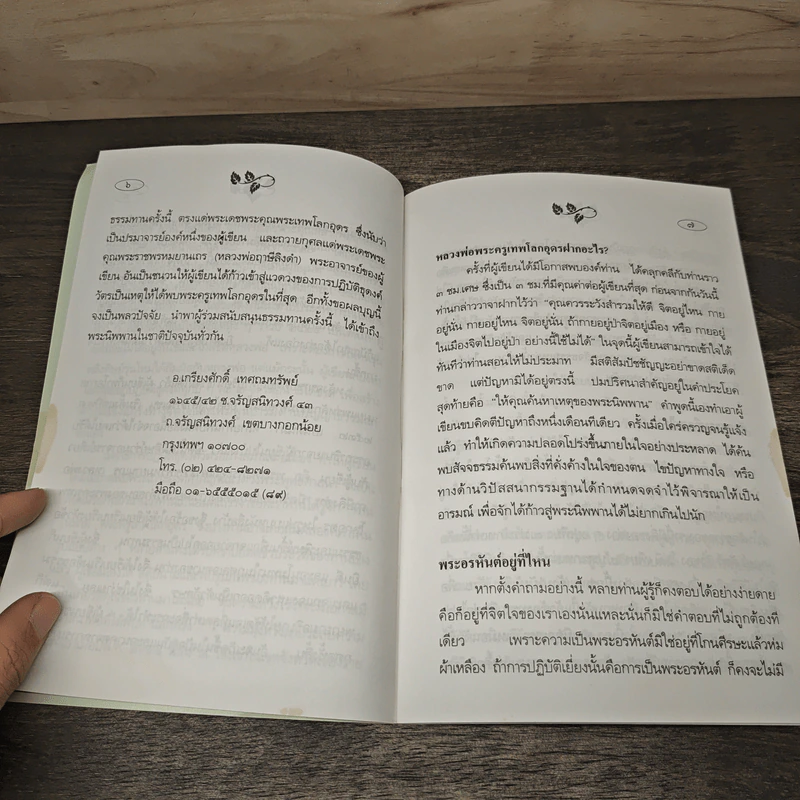 ๖
ธรรมทานครั้งนี้ ตรงแด่พระเดชพระคุณพระเทพโลกอุดร ซึ่งนับว่า
เป็นปรมาจารย์องค์หนึ่งของผู้เขียน และถวายกุศลแด่พระเดชพระ
คุณพระราชพรหมยานเถร (หลวงพ่อฤาษีลิงดำ) พระอาจารย์ของผู้
เขียน อันเป็นชนวนให้ผู้เขียนได้ก้าวเข้าสู่แวดวงของการปฏิบัติธุดงค์
วัตรเป็นเหตุให้ได้พบพระครูเทพโลกอุดรในที่สุด อีกทั้งขอผลบุญนี้
จงเป็นพลวปัจจัย นำพาผู้ร่วมสนับสนุนธรรมทานครั้งนี้ ได้เข้าถึง
พระนิพพานในชาติปัจจุบันทั่วกัน
อ.เกรียงศักดิ์ เทศถมทรัพย์
๑๖๔๕/๔๒ ซ.จรัญสนิทวงศ์ ๔๓
ถ.จรัญสนิทวงศ์ เขตบางกอกน้อย
กรุงเทพฯ ๑๐๗๐๐
โทร. (๐๒) ๔๒๔-๘๒๗๑
มือถือ ๐๑-๖๕๕๕๐๑๕ (๘๙)
๗
หลวงพ่อพระครูเทพโลกอุดรฝากอะไร?
ครั้งที่ผู้เขียนได้มีโอกาสพบองค์ท่าน ได้คลุกคลีกับท่านราว
๓ ชม.เศษ ซึ่งเป็น ๓ ชม.ที่มีคุณค่าต่อผู้เขียนที่สุด ก่อนจากกันวันนี้
ท่านกล่าววาจาฝากไว้ว่า "คุณควรระวังสำรวมให้ดี จิตอยู่ไหน กาย
อยู่นั่น กายอยู่ไหน จิตอยู่นั่น ถ้ากายอยู่ป่าจิตอยู่เมือง หรือ กายอยู่
ในเมืองจิตไปอยู่ป่า อย่างนี้ใช้ไม่ได้" ในจุดนี้ผู้เขียนสามารถเข้าใจได้
ทันทีว่าท่านสอนให้ไม่ประมาท มีสติสัมปชัญญะอย่าขาดสติเด็ด
ขาด แต่ปัญหามิได้อยู่ตรงนี้ ปมปริศนาสำคัญอยู่ในคำประโยค
สุดท้ายคือ "ให้คุณค้นหาเหตุของพระนิพพาน" คำพูดนี้เองทำเอาผู้
เขียนขบคิดตีปัญหาถึงหนึ่งเดือนทีเดียว ครั้งเมื่อใคร่ครวญจนรู้แจ้ง
แล้ว ทำให้เกิดความปลอดโปร่งขึ้นภายในใจอย่างประหลาด ได้ค้น
พบสัจจธรรมค้นพบสิ่งที่คั่งค้างในใจของตน ไขปัญหาทางใจ หรือ
ทางด้านวิปัสสนากรรมฐานได้กำหนดจดจำไว้พิจารณาให้เป็น
อารมณ์ เพื่อจักได้ก้าวสู่พระนิพพานได้ไม่ยากเกินไปนัก
พระอรหันต์อยู่ที่ไหน
หากตั้งคำถามอย่างนี้ หลายท่านผู้รู้ก็คงตอบได้อย่างง่ายดาย
คือก็อยู่ที่จิตใจของเราเองนั่นแหละนั่นก็มิใช่คำตอบที่ไม่ถูกต้องที
เดียว เพราะความเป็นพระอรหันต์มิใช่อยู่ที่โกนศีรษะแล้วห่ม
ผ้าเหลือง ถ้าการปฏิบัติเยี่ยงนั้นคือการเป็นพระอรหันต์ ก็คงจะไม่มี